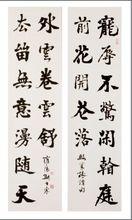 寵辱不驚閒看庭
前花開花落
外雲卷雲舒
去留無意漫隨天